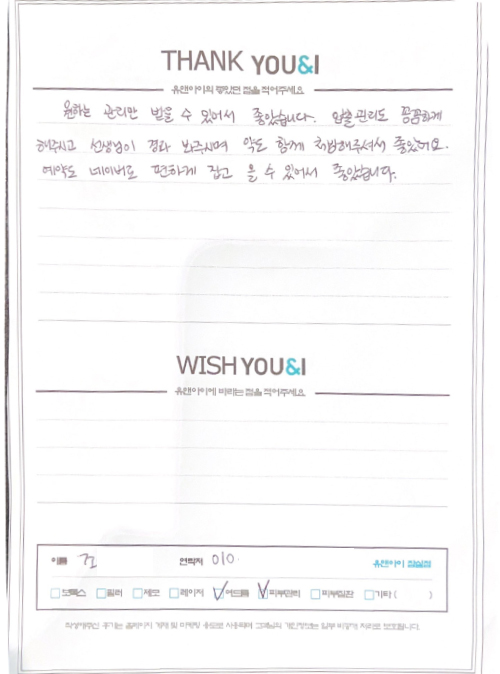 THANK YOU&I
유앤아이의 좋았던 점을 적어주세요
원하는 관리만 받을 수 있어서 좋았습니다. 압출관리도 꼼꼼하게
해주시고 선생님이 경과 봐주시며 약도 함께 처방해주셔서 좋았어요.
예약도 네이버로 편하게 잡고 올 수 있어서 좋았습니다.
WISH YOU&I
유앤아이에 바라는 점을 적어주세요
이름 연락처 010 유앤아이 잠실점
보톡스 필러 제모 레이저 여드름 피부관리 피부질환 기타 ( )
작성해주신 후기는 홈페이지 게재 및 마케팅 용도로 사용되며 고객님의 개인정보는 일부 비공개 처리로 보호됩니다.